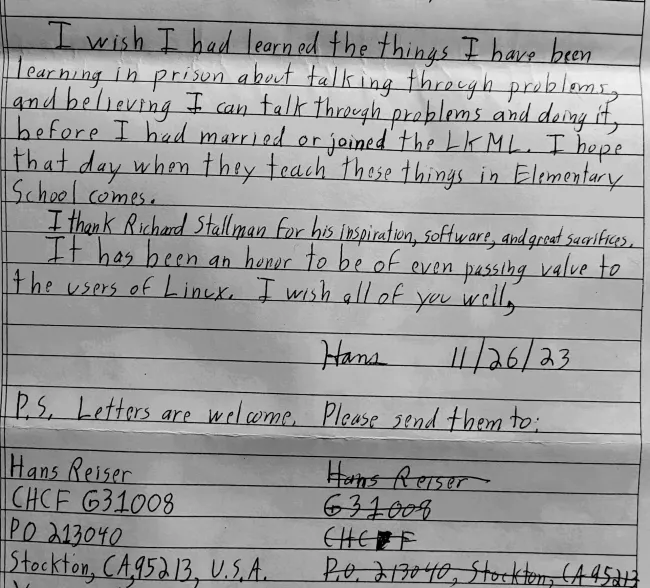 I wish I had learned the things I have been
learning in prison about talking through problems,
and believing I can talk through problems and doing it,
before I had married or joined the LKML. I hope
that day when they teach these things in Elementary
School comes.
I thank Richard Stallman for his inspiration, software, and great sacrifices.
It has been an honor to be of even passing value to
the users of Linux. I wish all of you well,
Hans 11/26/23
P.S. Letters are welcome. Please send them to:
Hans Reiser Hans Reiser
CHCF G31008 G31008
PO 213040 CHCF
Stockton, CA, 95213, U.S.A. P.O. 213040, Stockton, CA 95213